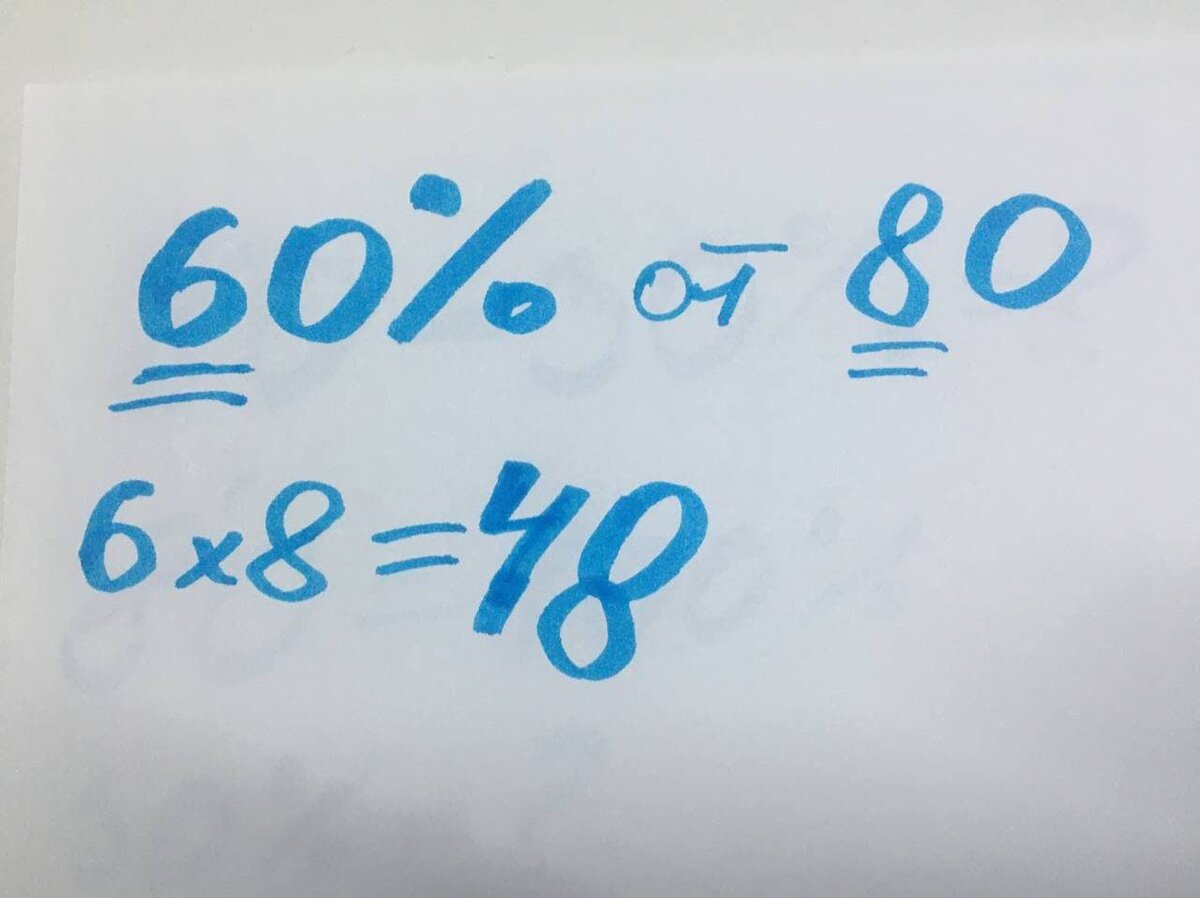 60% от 80
6x8=48